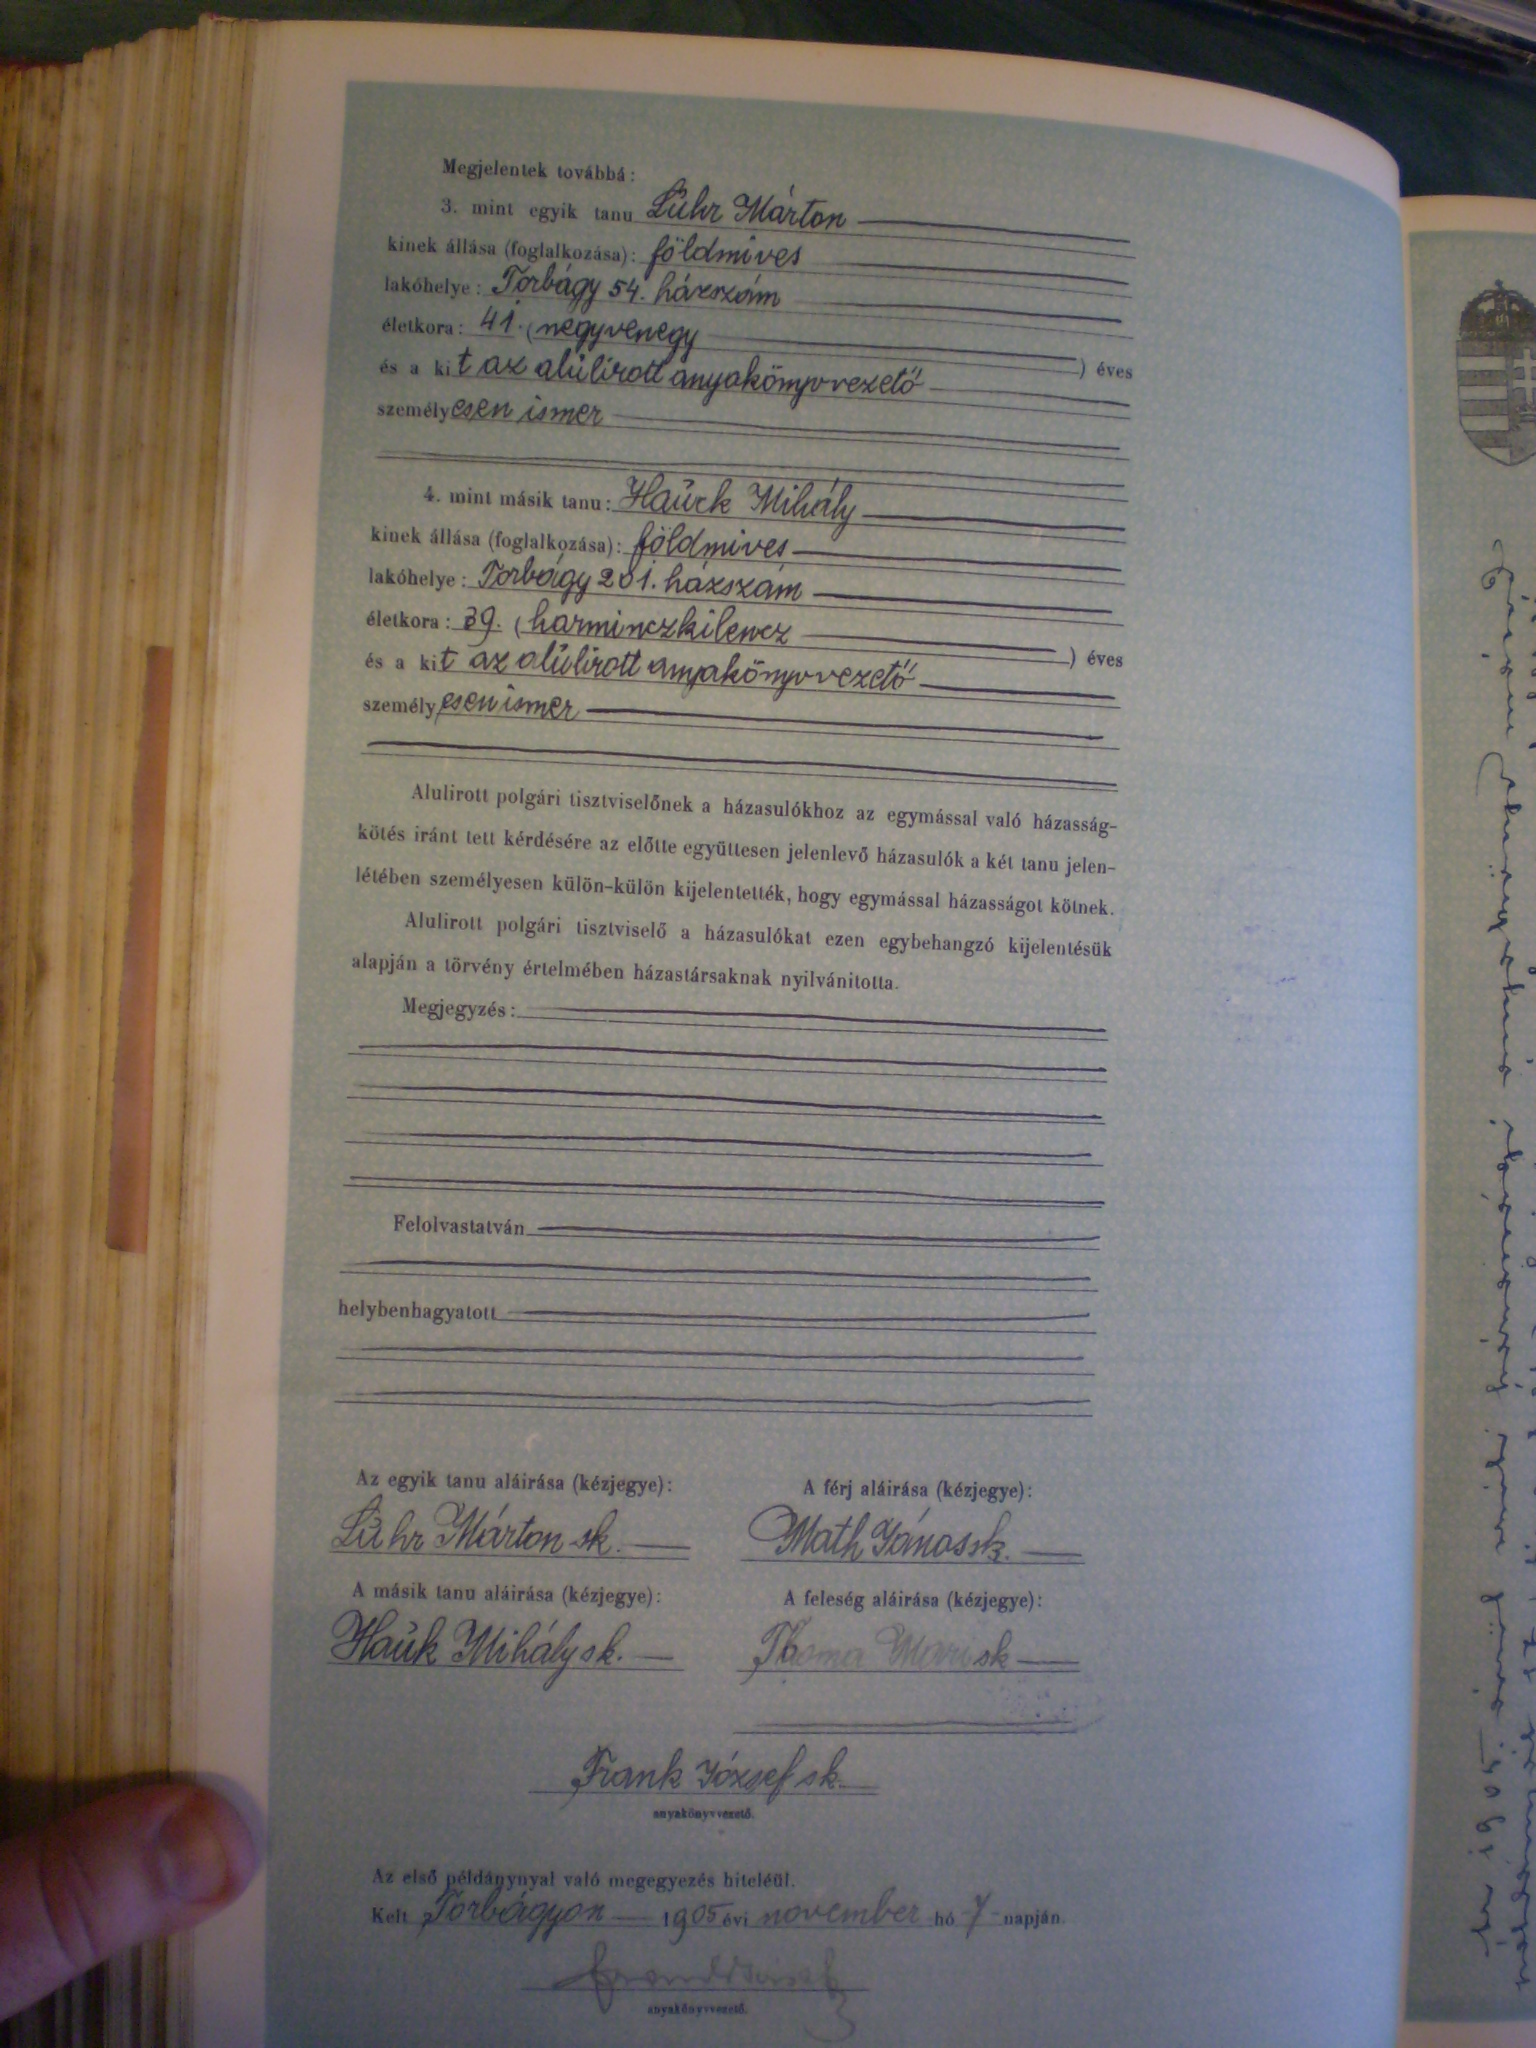 Megjelentek továbbá:
3. mint egyik tanu Lühr Márton
kinek állása (foglalkozása): földmives
lakóhelye: Torbágy 54. házszám
életkora: 41. (negyvenegy ) éves
és a kit az alúlirott anyakönyvvezető
személyesen ismer
4. mint másik tanu: Haück Mihály
kinek állása (foglalkozása): földmives
lakóhelye: Torbágy 201. házszám
életkora: 39. (harminczkilencz ) éves
és a kit az alúlirott anyakönyvvezető
személyesen ismer
Alulirott polgári tisztviselőnek a házasulókhoz az egymással való házasság-
kötés iránt tett kérdésére az előtte együttesen jelenlevő házasulók a két tanu jelen-
létében személyesen külön-külön kijelentették, hogy egymással házasságot kötnek.
Alulirott polgári tisztviselő a házasulókat ezen egybehangzó kijelentésük
alapján a törvény értelmében házastársaknak nyilvánitotta.
Megjegyzés:
Felolvastatván
helybenhagyatott
Az egyik tanu aláirása (kézjegye):
Lühr Márton sk.
A férj aláirása (kézjegye):
Math János sk.
A másik tanu aláirása (kézjegye):
Haük Mihály sk.
A feleség aláirása (kézjegye):
Thoma Mari sk
Frank József sk.
anyakönyvvezető.
Az első példánynyal való megegyezés hiteléül.
Kelt Torbágyon 1905 évi november hó 7 napján.
anyakönyvvezető.